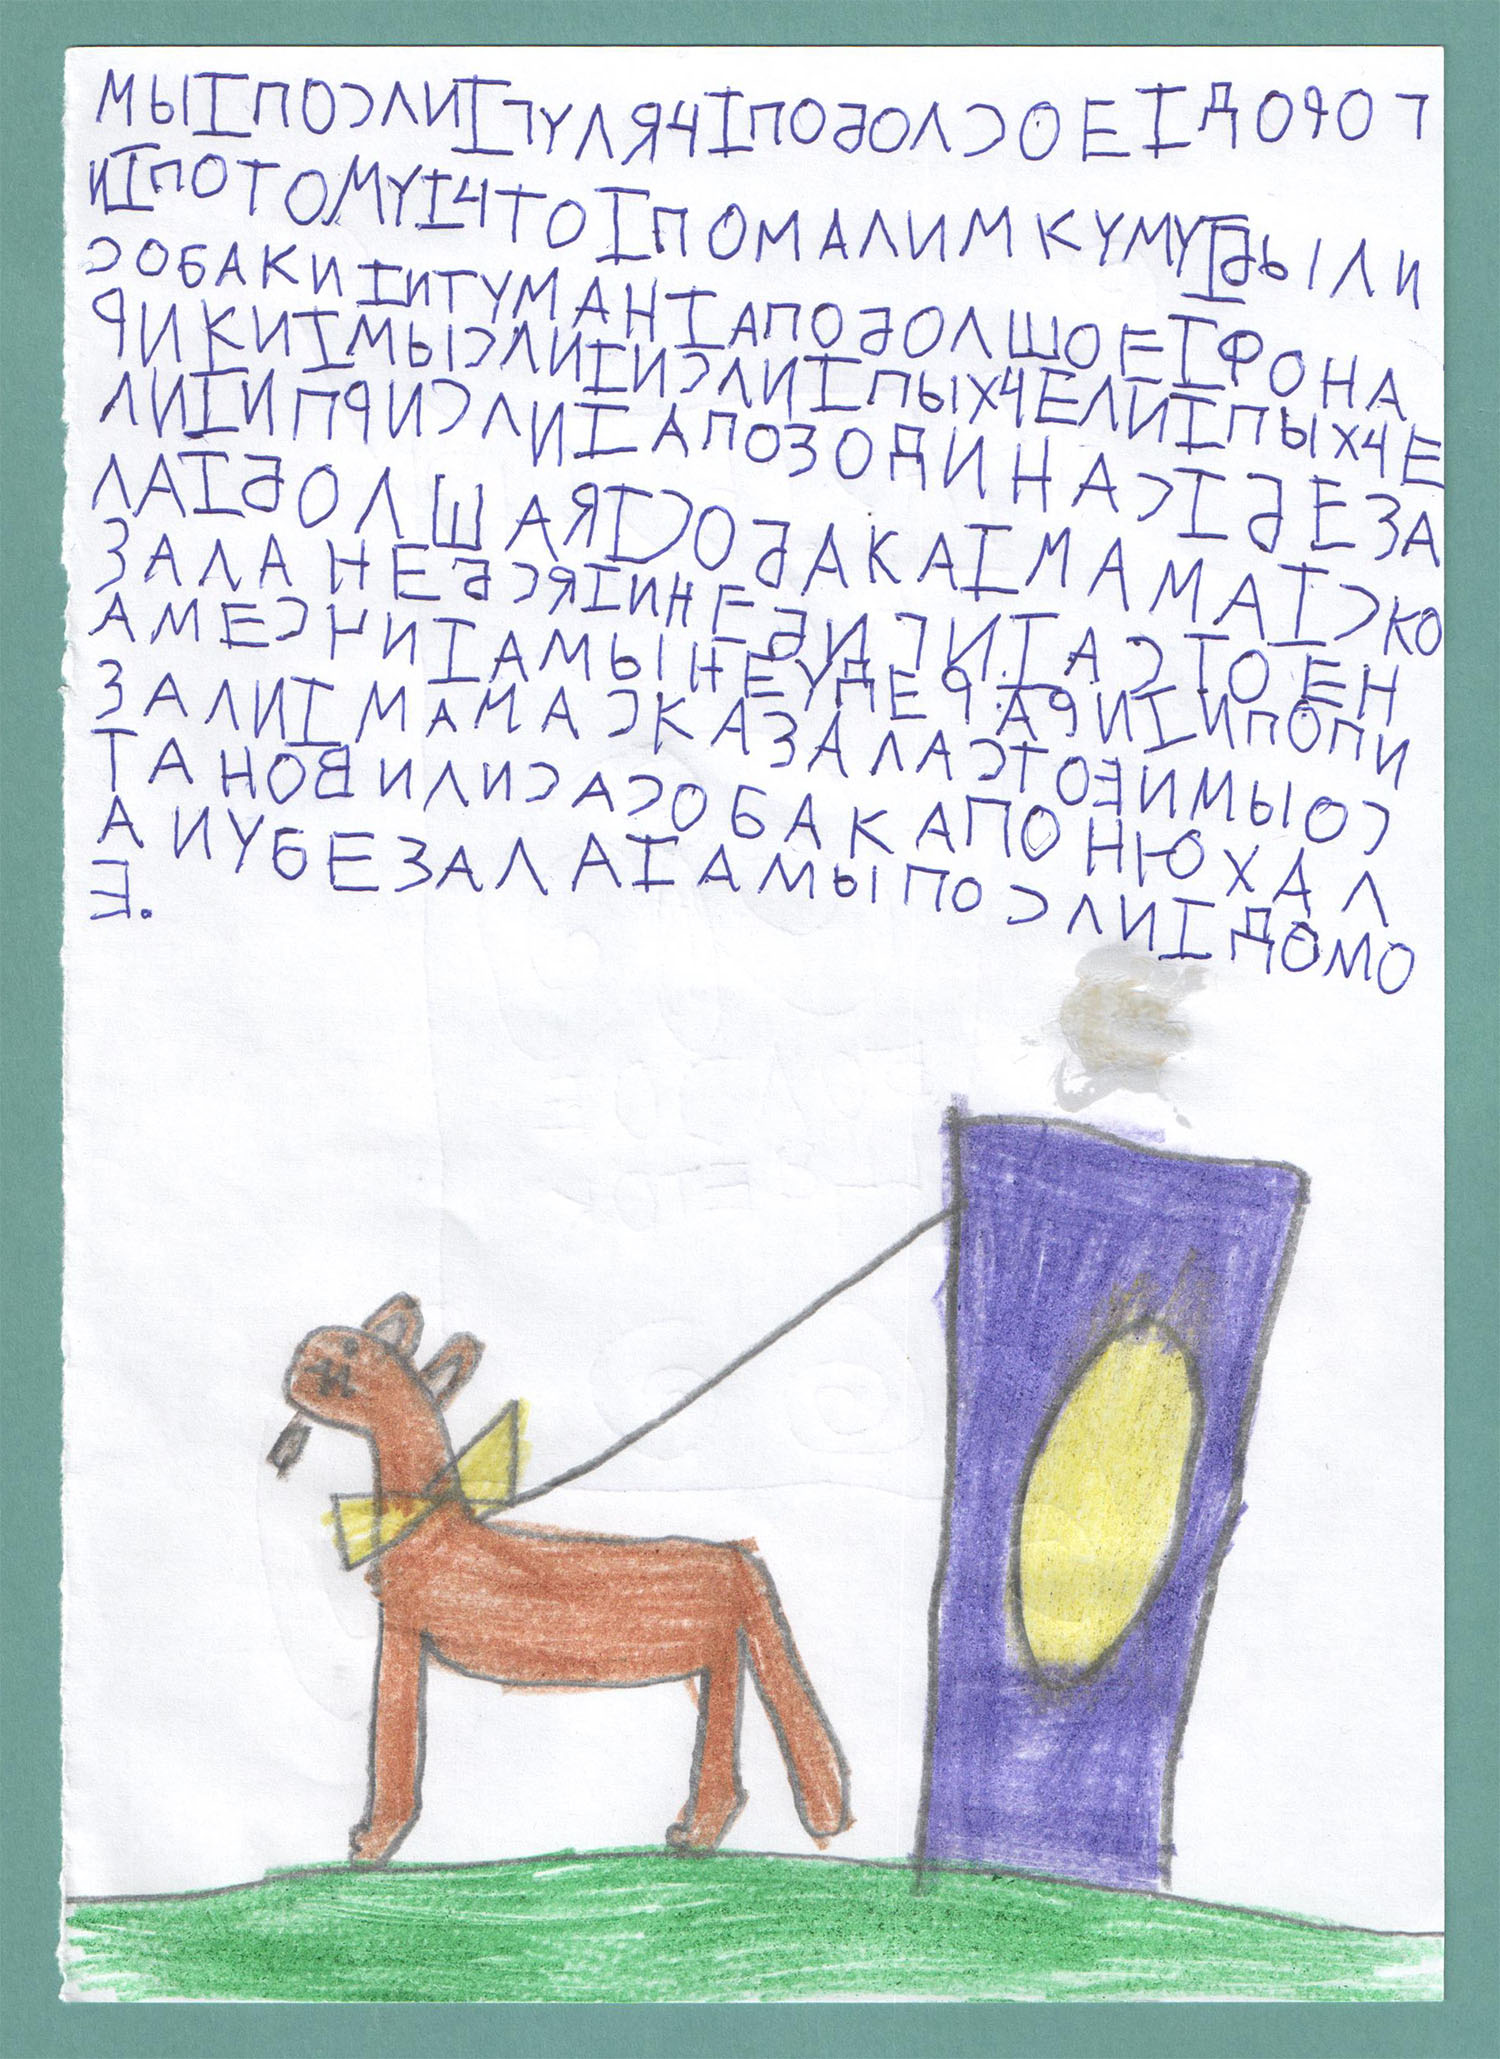 МЫIПОСЛИIГУЛЯЧIПОБОЛСОЕIДОРОГ
ИIПОТОМУIЧТОIПОМАЛИМКУМУIБЫЛИ
СОБАКИIИТУМАНIАПОБОЛШОЕIФОНА
РИКИIМЫСЛИIИСЛИIПЫХЧЕЛИIПЫХЧЕ
ЛИIИПРИСЛИIАПОЗОДИНАСIБЕЗА
ЛАIБОЛШАЯIСОБАКАIМАМАIСКО
ЗАЛАНЕБСЯIИНЕБИГИIАСТОЕН
АМЕСНИIАМЫНЕУДЕРАРИIИПОПИ
ЗАЛИIМАМАСКАЗАЛАСТОЭИМЫОС
ТАНОВИЛИСАСОБАКАПОНЮХАЛ
АИУБЕЗАЛАIАМЫПОСЛИIДОМО
Э.